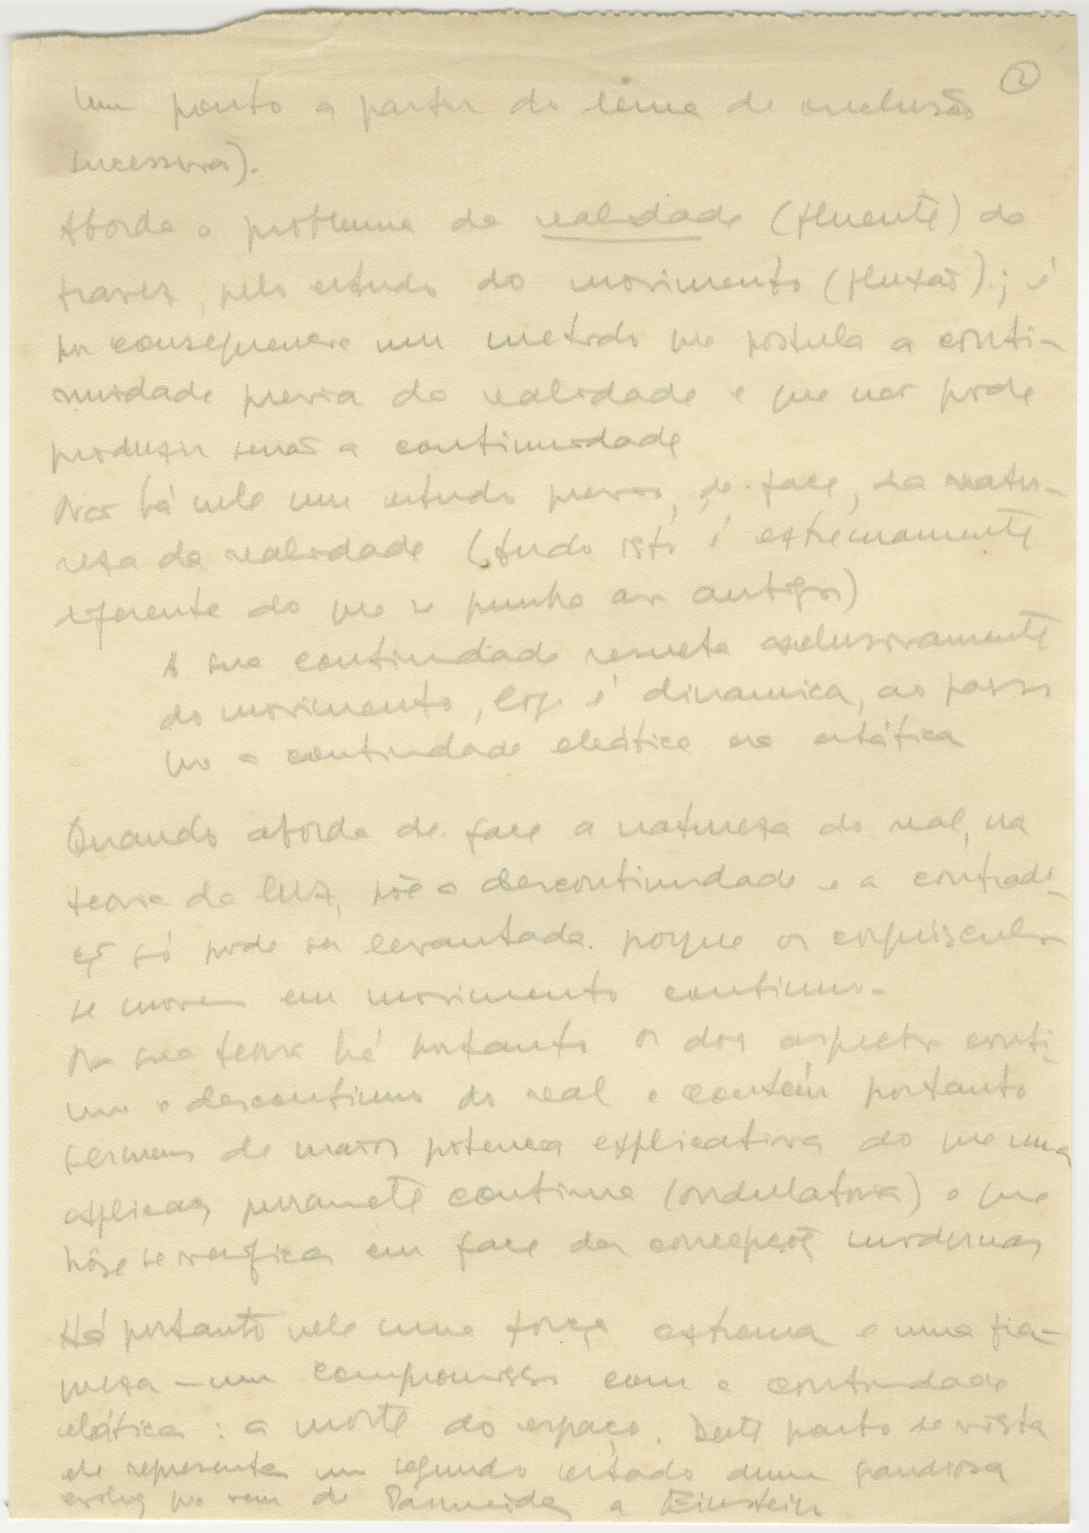 2
um ponto a partir do lema de exclusão
sucessiva).
Aborda o problema da realidade (fluente) do
através, pelo estudo do movimento (fluxão); é
por consequencia um metodo que postula a conti-
nuidade previa da realidade e que não pode
produzir senão a continuidade
Não há nele um estudo previo, de face, da natu-
reza da realidade (tudo isto é extremamente
diferente do que se punha aos antigos)
A sua continuidade resulta exclusivamente
do movimento, logo é dinamica, ao passo
que a continuidade eleática era estática
Quando aborda de face a natureza do real, na
teoria da luz, põe a descontinuidade e a contradi-
ção só pode ser levantada porque os corpúsculos
se movem em movimento continuo.
Na sua teoria há portanto os dois aspectos conti-
nuo e descontinuo do real e contém portanto
germens de maior potencia explicativa do que uma
explicação puramente continua (ondulatoria) o que
hoje se verifica em face das concepções modernas
Há portanto nele uma força extrema e uma fra-
queza — um compromisso com a continuidade
eleática: a morte do espaço. Deste ponto de vista
ele representa um segundo estado duma grandiosa
evolução que vem de Parmenides a Einstein